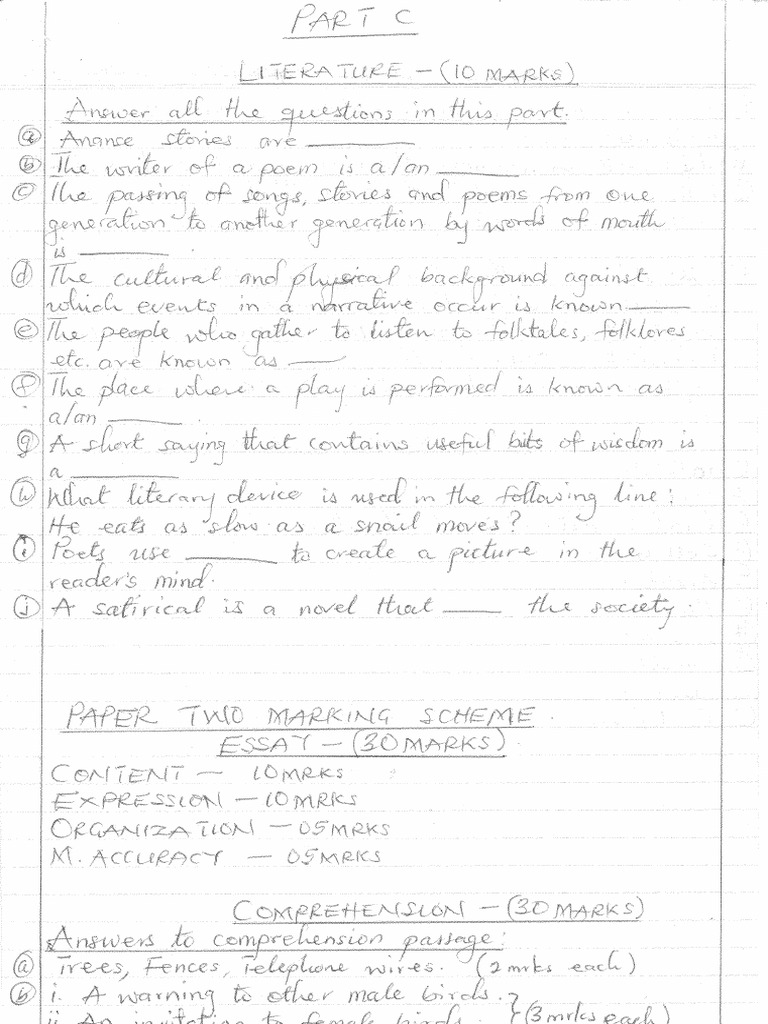 PART C
LITERATURE – (10 MARKS)
Answer all the questions in this part.
(a) Ananse stories are ________
(b) The writer of a poem is a/an ________
(c) The passing of songs, stories and poems from one
generation to another generation by words of mouth
is ________.
(d) The cultural and physical background against
which events in a narrative occur is known ______
(e) The people who gather to listen to folktales, folklores
etc. are known as _____
(f) The place where a play is performed is known as
a/an _______.
(g) A short saying that contains useful bits of wisdom is
a ________
(h) What literary device is used in the following line:
He eats as slow as a snail moves?
(i) Poets use ________ to create a picture in the
reader's mind.
(j) A satirical is a novel that _____ the society.
PAPER TWO MARKING SCHEME.
ESSAY – (30 MARKS)
CONTENT – 10 MRKS
EXPRESSION – 10 MRKS
ORGANIZATION – 05 MRKS
M. ACCURACY – 05 MRKS
COMPREHENSION – (30 MARKS)
Answers to comprehension passage:
(a) Trees, Fences, Telephone wires. (2 mrks each)
(b) i. A warning to other male birds. }
ii. An invitation to female birds. } (3 mrks each)